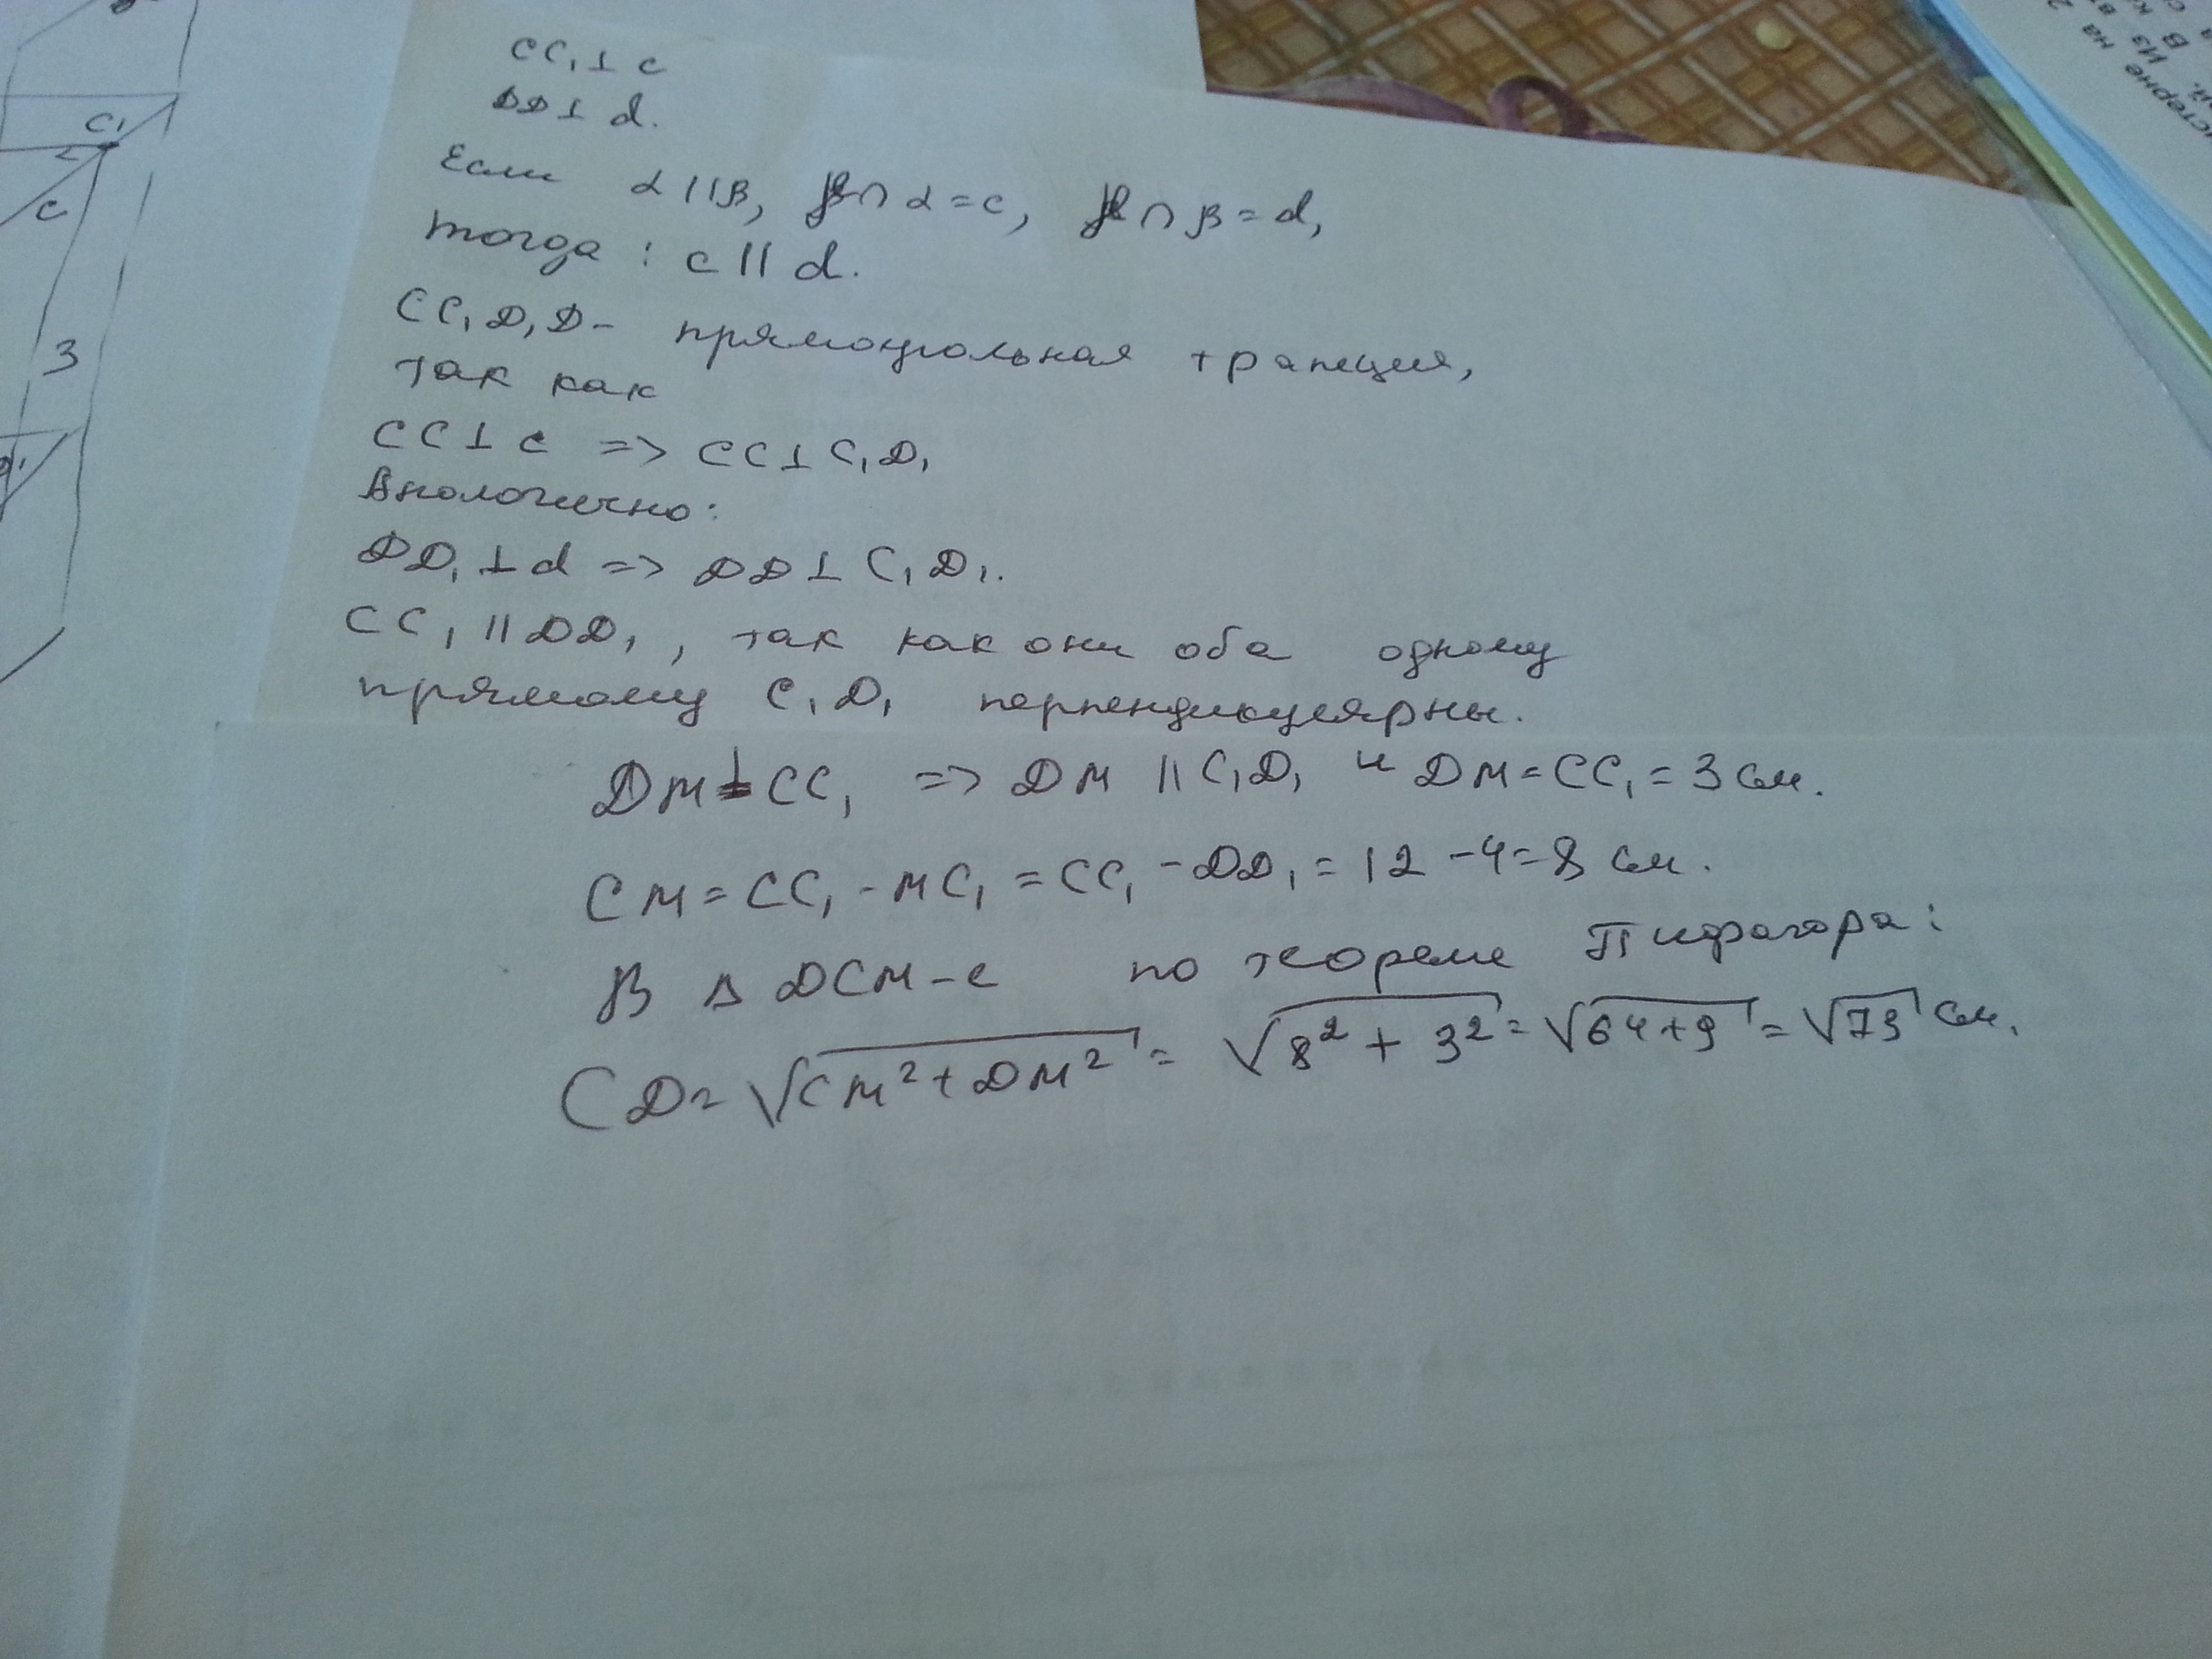 CC₁ ⊥ c
DD ⊥ d.
Если α || β, ∩ α = c, ∩ β = d,
тогда : c || d.
CC₁D₁D – прямоугольная трапеция,
так как
CC ⊥ c => CC ⊥ C₁D₁
Анологично:
DD₁ ⊥ d => DD ⊥ C₁D₁.
CC₁ || DD₁, так как они оба одному
прямому C₁D₁ перпендикулярны.
DM ⊥ CC₁ => DM || C₁D₁ и DM = CC₁ = 3 см.
CM = CC₁ - MC₁ = CC₁ - DD₁ = 12 - 4 = 8 см.
В Δ DCM-е по теореме Пифагора:
CD = √CM² + DM² = √8² + 3² = √64+9 = √73 см.
C₁
c
3